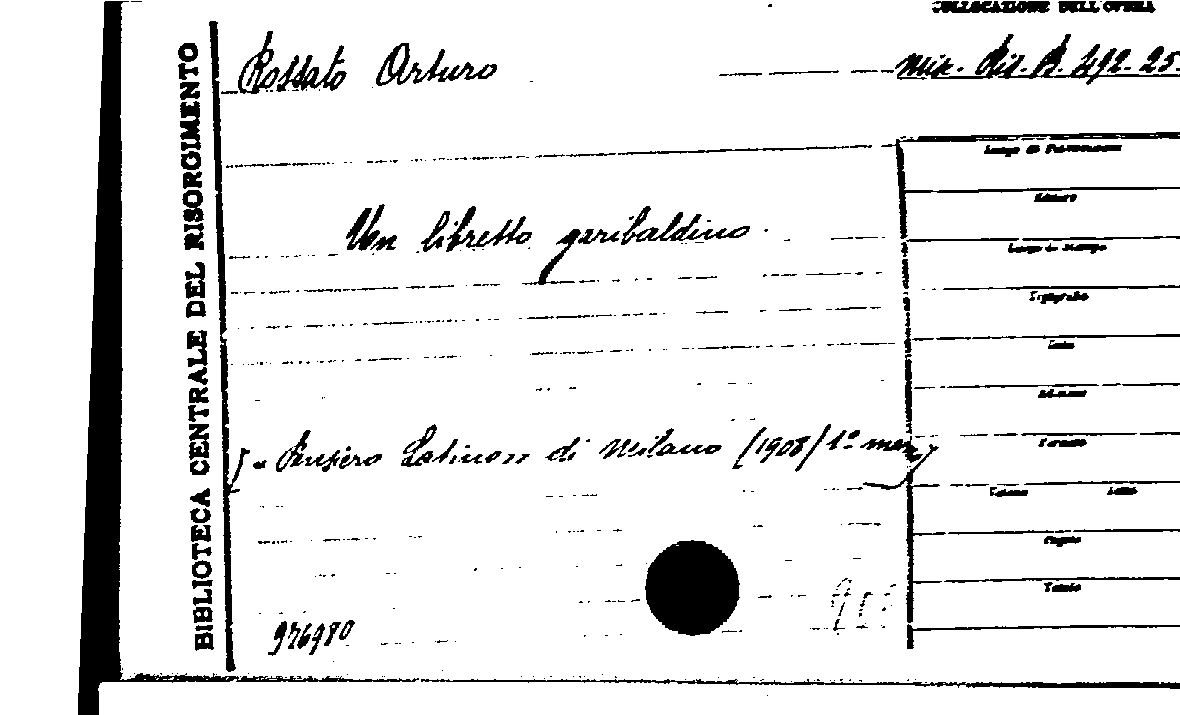 COLLOCAZIONE DELL'OPERA
Rossato Arturo
Misc. Ris. B. 492. 25.
BIBLIOTECA CENTRALE DEL RISORGIMENTO
Un libretto garibaldino.
("Pensiero Latino" di Milano (1908) 1º
Luogo di Pubblicazione
Numero
Luogo di Stampa
Tipografia
Data
Edizione
Formato
Volume
Pagine
Tavole
976980